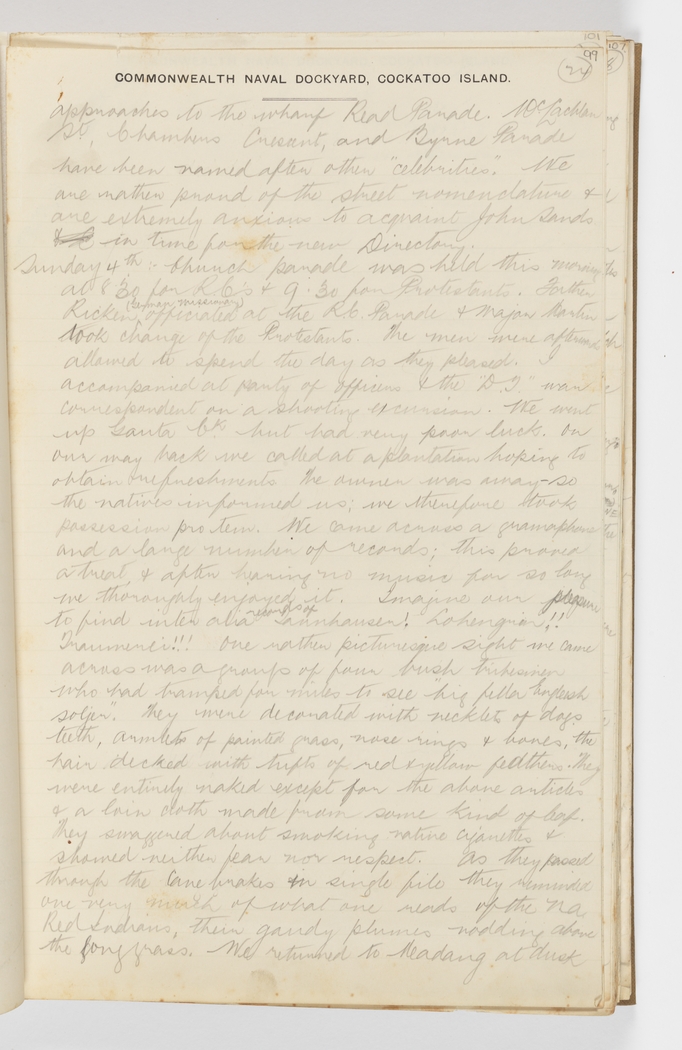 101
99
24
COMMONWEALTH NAVAL DOCKYARD, COCKATOO ISLAND.
approaches to the wharf Read Parade. McLachlan
St, Chambers Cresent, and Byrne Parade
have been named after other "celebrities". We
are rather proud of the street nomenclature &
are extremely anxious to acquaint John Sands
in time for the new Directory.
Sunday 4th :- Church parade was held this morning
at 8.30 for R.C's & 9.30 for Protestants. Father
(German missionary)
officiated at the R.C. Parade & Major Martin
took charge of the Protestants. The men were afterward
allowed to spend the day as they pleased. I
accompanied at party of officers & the "D.T" war
correspondent on a shooting excursion. We went
up Santa Ck but had very poor luck. On
our way back we called at a plantation hoping to
obtain refreshments. The owner was away - so
the natives informed us; we therefore took
possession pro.tem. We came across a gramophone
and a large number of records; this proved
a treat, & after hearing no music for so long
we thoroughly enjoyed it. Imagine our pleasure
records of
to find inter alia Tannhauser! Lohengrin!!
Traumerei!!! One rather picturesque sight we came
across was a group of four bush tribesmen
who had tramped for miles to see "big fella English
soljer". They were decorated with necklets of dogs
teeth, armlets of painted grass, nose rings & bones, the
hair decked with tufts of red & yellow feathers. They
were entirely naked except for the above articles
& a loin cloth made from some kind of leaf.
They swaggered about smoking native cigarettes &
showed neither fear nor respect. As they passed
through the cane brakes in single file they reminded
one very much of what one reads of the Na.
Red Indians, their gaudy plumes nodding above
the long grass. We returned to Madang at dusk